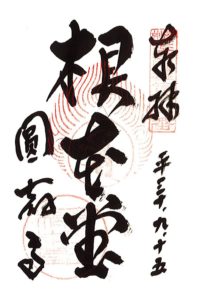 奉拝
平三十.九.十五
根本堂
圓教寺